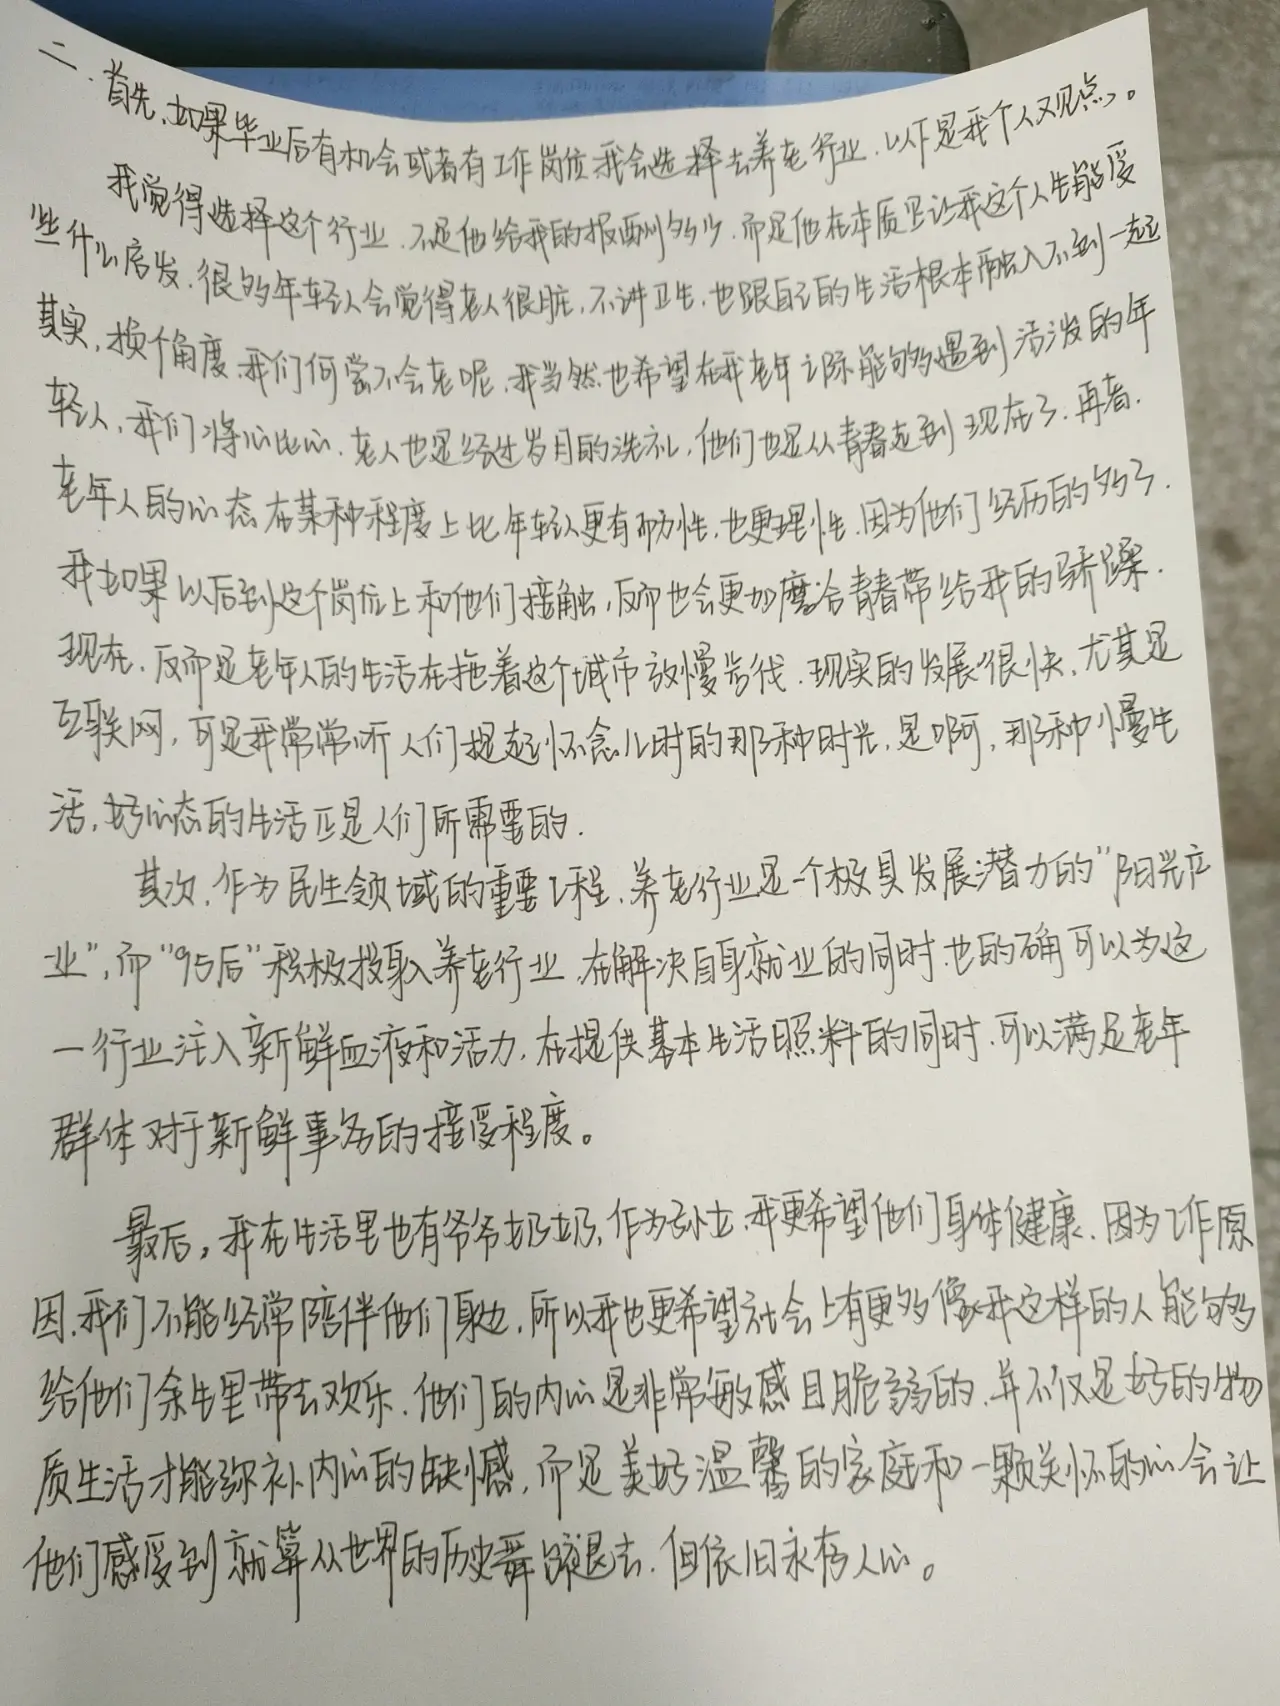 二、首先,如果毕业后有机会或者有工作岗位我会选择去养老行业.以下是我个人观点。
我觉得选择这个行业.不是他给我的报酬多少.而是他在本质里让我这个人生能受
些什么启发.很多年轻人会觉得老人很脏.不讲卫生.也跟自己的生活根本融入不到一起
其实,换个角度.我们何尝不会老呢.我当然也希望在我老年之际能够遇到活泼的年
轻人,我们将心比心.老人也是经过岁月的洗礼,他们也是从青春走到现在了.再者.
老年人的心态在某种程度上比年轻人更有耐性,也更理性.因为他们经历的多了.
我如果以后到这个岗位上和他们接触,反而也会更加磨合青春带给我的骄躁.
现在,反而是老年人的生活在拖着这个城市放慢步伐.现实的发展很快,尤其是
互联网,可是我常常听人们提起怀念儿时的那种时光,是啊,那种慢生
活,好心态的生活正是人们所需要的.
其次.作为民生领域的重要工程.养老行业是一个极具发展潜力的"阳光产
业",而"95后"积极投身入养老行业.在解决自身就业的同时.也的确可以为这
一行业注入新鲜血液和活力,在提供基本生活照料的同时.可以满足老年
群体对于新鲜事务的接受程度。
最后,我在生活里也有爷爷奶奶,作为孙女.我更希望他们身体健康.因为工作原
因.我们不能经常陪伴他们身边,所以我也更希望社会上有更多像我这样的人能够多
给他们余生里带去欢乐.他们的内心是非常敏感且脆弱的.并不仅是好的物
质生活才能弥补内心的缺憾,而是美好温馨的家庭和一颗关怀的心会让
他们感受到就算从世界的历史舞台褪去.但依旧永存人心。